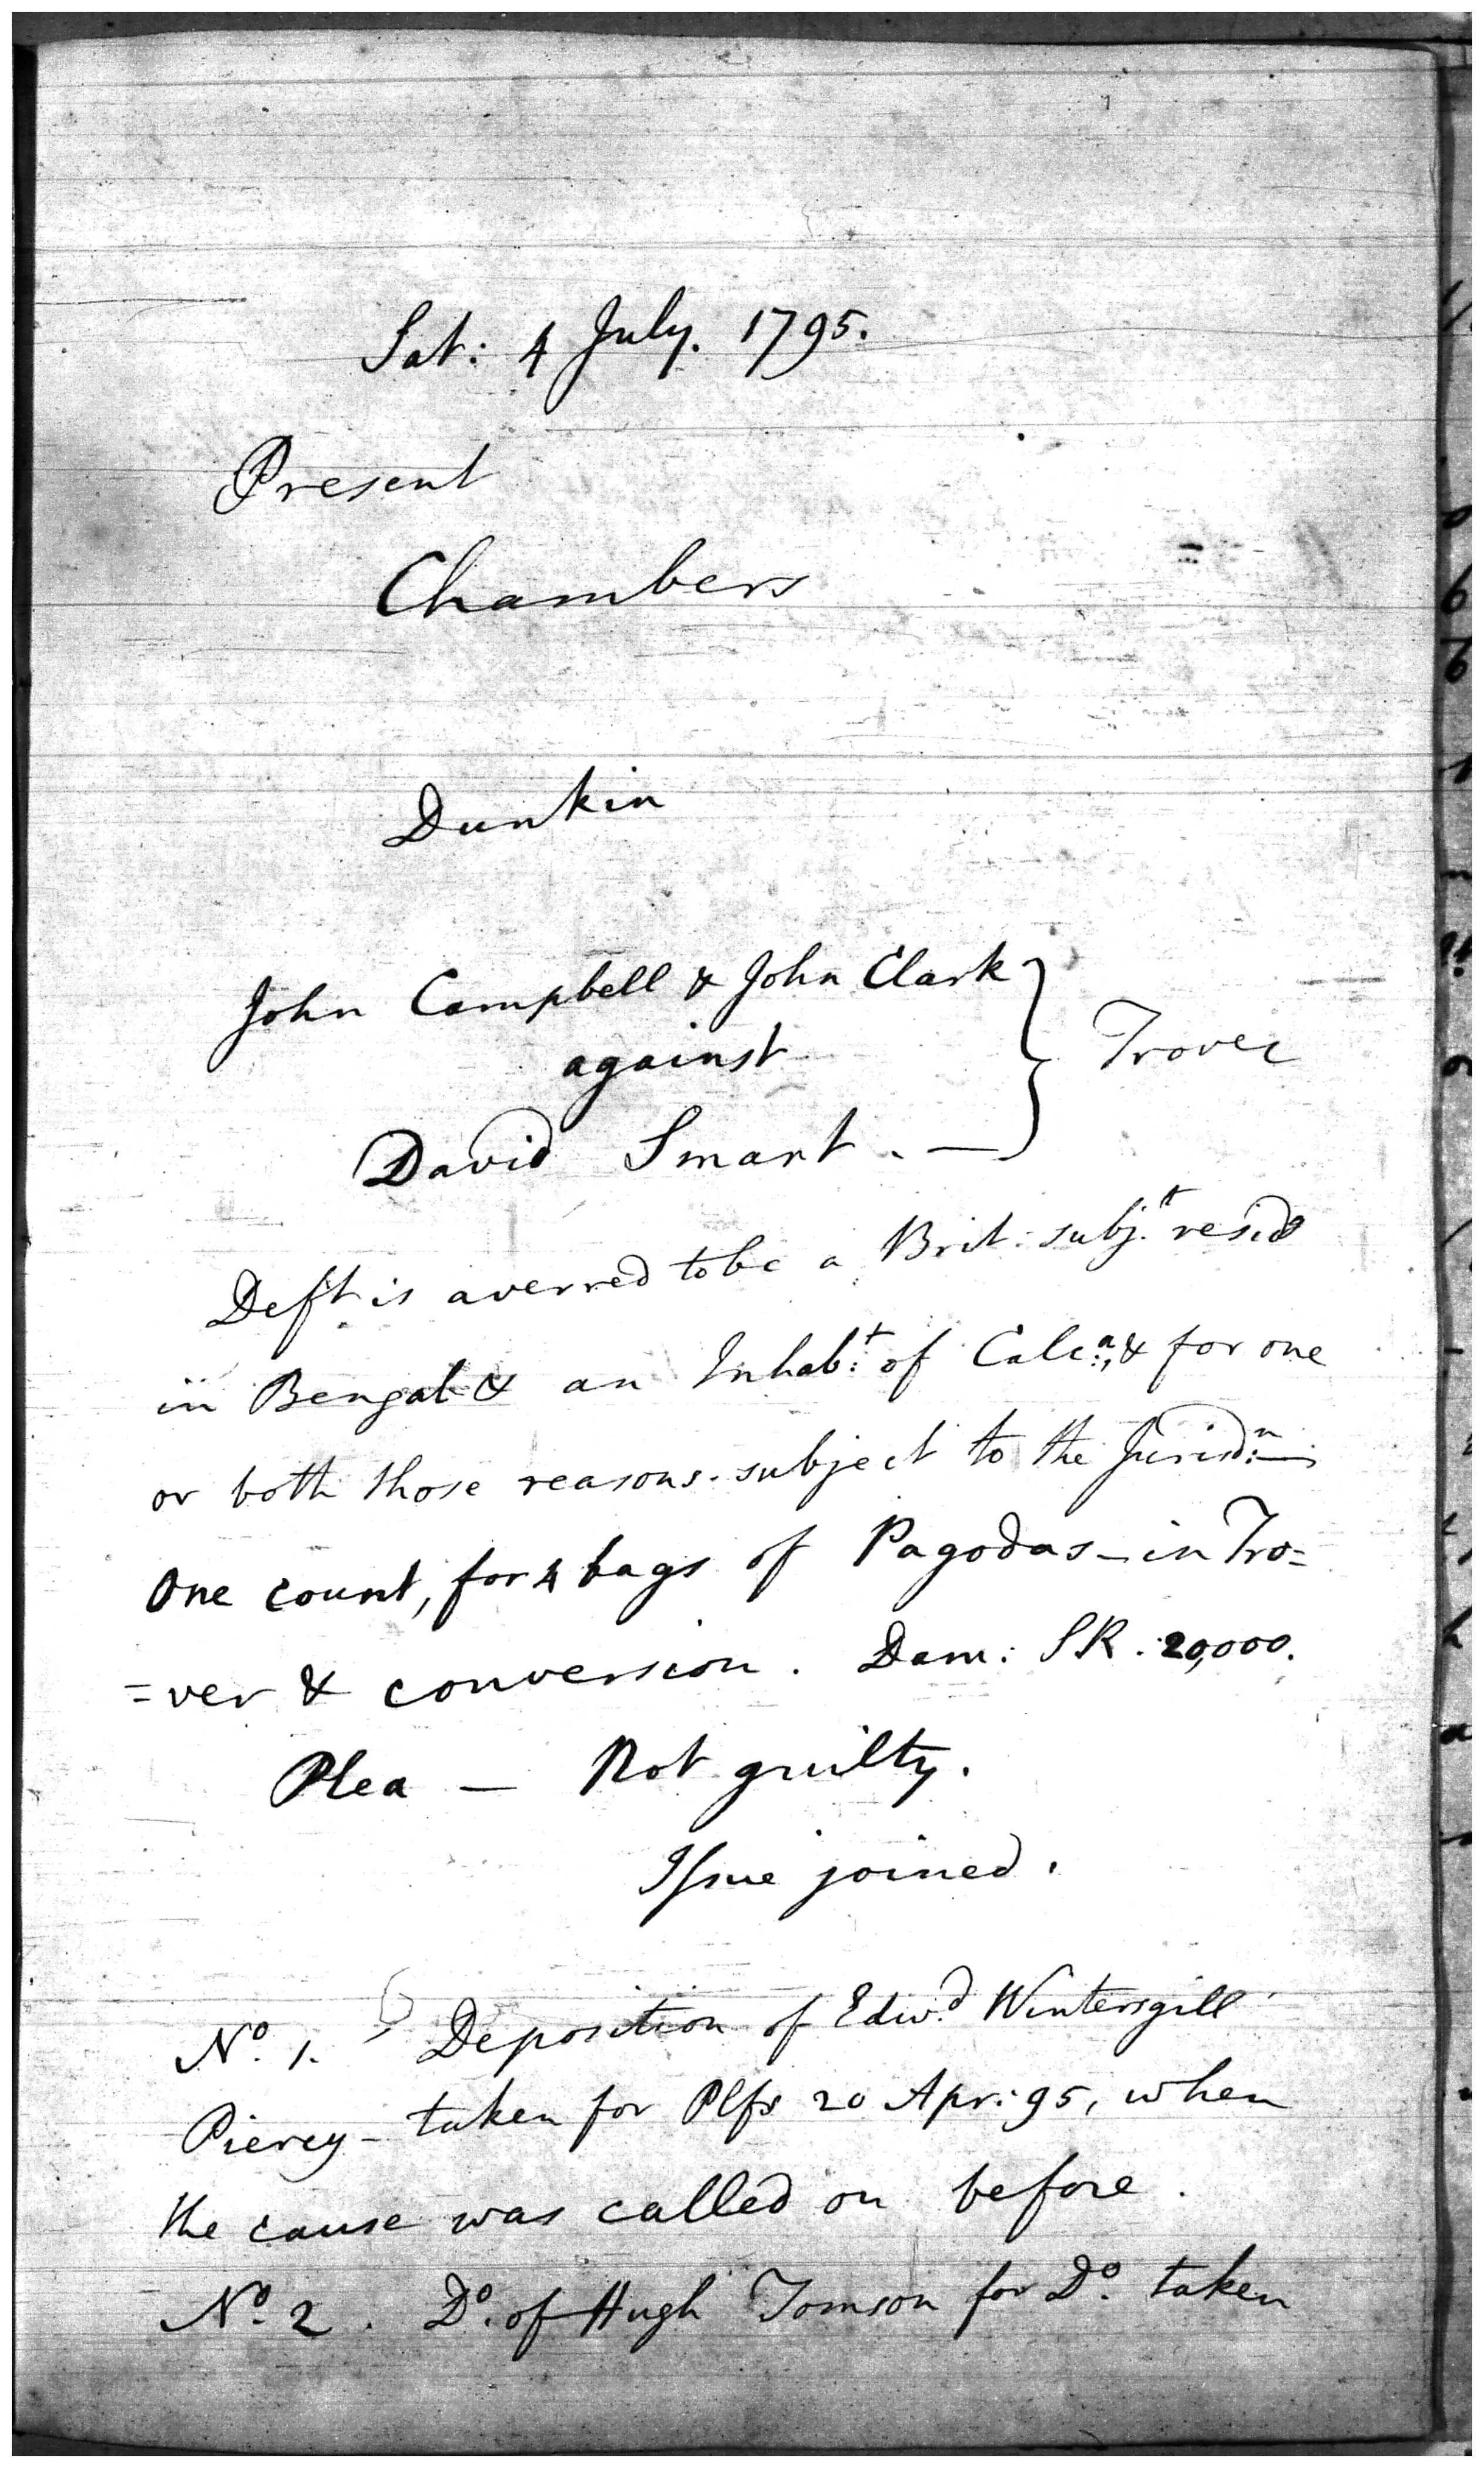 Sat: 4 July. 1795.
Present
Chambers
Dunkin
John Campbell & John Clark
against
Trover
David Smart. —
Deft is averred to be a Brit: subj.t resid
in Bengal & an Inhab:t of Calc:a, & for one
or both those reasons subject to the Jurisd:n
One count, for 4 bags of Pagodas — in Tro=
=ver & conversion. Dam: SR. 20,000.
Plea — Not guilty.
Issue joined.
No. 1. Deposition of Edw.d Wintersgill
Piercy — taken for Plfs 20 Apr: 95, when
the cause was called on before.
No. 2. Do. of Hugh Tomson for Do. taken